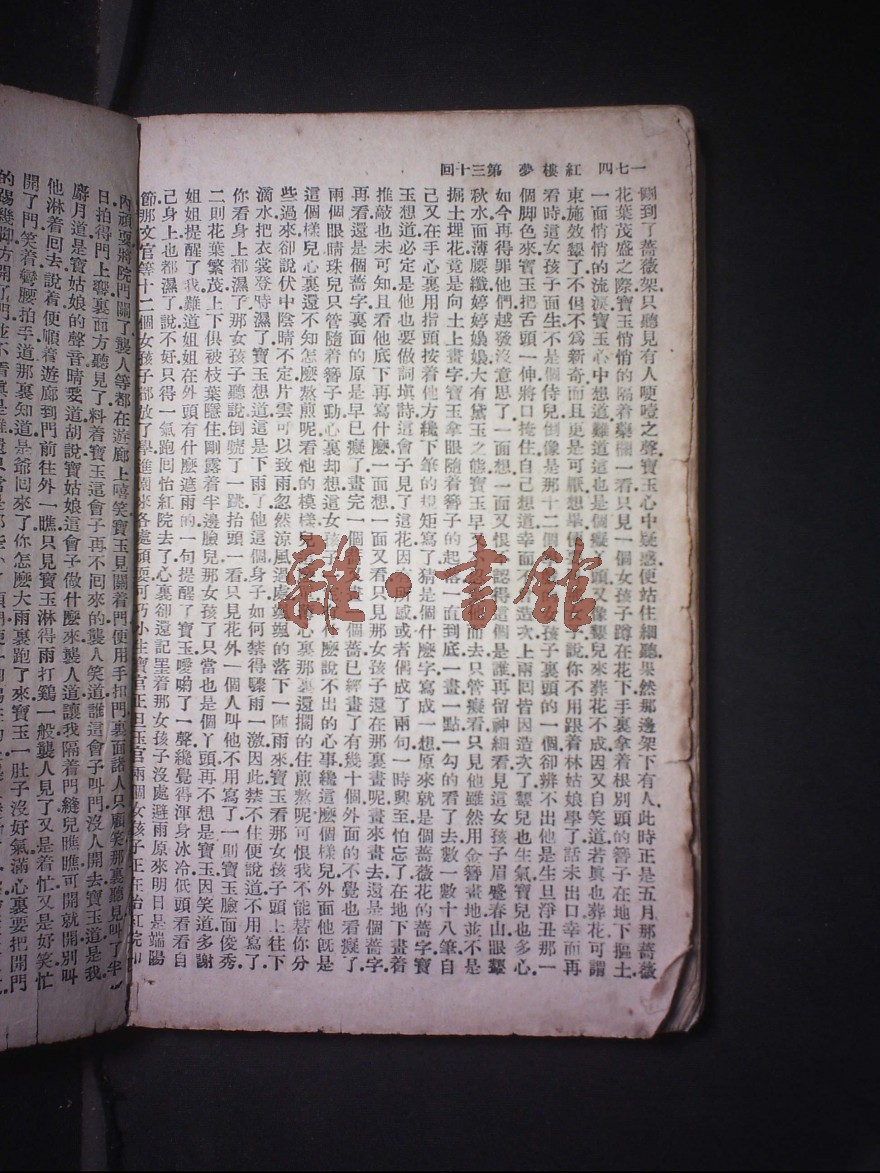 一七四 紅樓夢 第三十回
個到了薔薇架只聽見有人哽噎之聲寶玉心中疑惑便站住細聽果然那邊架下有人此時正是五月那薔薇
花葉茂盛之際寶玉悄悄的隔着藥欄一看只見一個女孩子蹲在花下手裏拿着根別頭的簪子在地下摳土
一面悄悄的流淚寶玉心中想道難道這也是個癡丫頭又像顰兒來葬花不成因又自笑道若眞也葬花可謂
東施效顰了不但不爲新奇而且更是可厭想畢便
說你不用跟着林姑娘學了話未出口幸而再
看時這女孩子面生不是個侍兒倒像是那十二個
孩子裏頭的一個卻辨不出他是生旦淨丑那一
個脚色來寶玉把舌頭一伸將口掩住自己想道幸而不
造次上兩回皆因造次了顰兒也生氣寶兒也多心
如今再得罪他們越發沒意思了一面想一面又恨
認得這個是誰再留神細看見這女孩子眉蹙春山眼顰
秋水面薄腰纖婷婷嬝嬝大有黛玉之態寶玉早又
而去只管癡看只見他雖然用金簪畫地並不是
掘土埋花竟是向土上畫字寶玉拿眼隨着簪子的起落一直到底一畫一點一勾的看了去數一數十八筆自
己又在手心裏用指頭按着他方纔下筆的規矩寫了猜是個什麽字寫成一想原來就是個薔薇花的薔字寶
玉想道必定是他也要做詞塡詩這會子見了這花因
所感或者偶成了兩句一時興至怕忘了在地下畫着
推敲也未可知且看他底下再寫什麽一面想一面又看只見那女孩子還在那裏畫呢畫來畫去還是個薔字
再看還是個薔字裏面的原是早已癡了畫完一個薔
個薔已經畫了有幾十個外面的不覺也看癡了
兩個眼睛珠兒只管隨着簪子動心裏却想這女孩子
什麽說不出的心事纔這麽個樣兒外面他旣是
這個樣兒心裏還不知怎麽熬煎呢看他的模樣兒
心裏那裏還擱的住煎熬呢可恨我不能替你分
些過來卻說伏中陰晴不定片雲可以致雨忽然涼風過處颯颯的落下一陣雨來寶玉看那女孩子頭上往下
滴水把衣裳登時濕了寶玉想道這是下雨了他這個身子如何禁得驟雨一激因此禁不住便說道不用寫了
你看身上都濕了那女孩子聽說倒唬了一跳抬頭一看只見花外一個人叫他不用寫了一則寶玉臉面俊秀
二則花葉繁茂上下俱被枝葉隱住剛露着半邊臉兒那女孩了只當也是個丫頭再不想是寶玉因笑道多謝
姐姐提醒了我難道姐姐在外頭有什麽遮雨的一句提醒了寶玉噯喲了一聲纔覺得渾身冰冷低頭看看自
己身上也都濕了說不好只得一氣跑回怡紅院去了心裏卻還記罣着那女孩子沒處避雨原來明日是端陽
節那文官等十二個女孩子都放了學進園來各處頑耍可巧小生寶官正旦玉官兩個女孩子正在怡紅院
內頑耍將院門關了襲人等都在遊廊上嘻笑寶玉見關着門便用手扣門裏面諸人只顧笑那裏聽見叫了半
日拍得門上響裏面方聽見了料着寶玉這會子再不回來的襲人笑道誰這會子叫門沒人開去寶玉道是我
麝月道是寶姑娘的聲音晴雯道胡說寶姑娘這會子做什麽來襲人道讓我隔着門縫兒瞧瞧可開就開別叫
他淋着囘去說着便順着遊廊到門前往外一瞧只見寶玉淋得雨打鷄一般襲人見了又是着忙又是好笑忙
開了門笑着彎腰拍手道那裏知道是爺回來了你怎麽大雨裏跑了來寶玉一肚子沒好氣滿心裏要把開門
的踢幾脚方開了門並不看眞是誰還只當是那些小丫頭
雜·書館